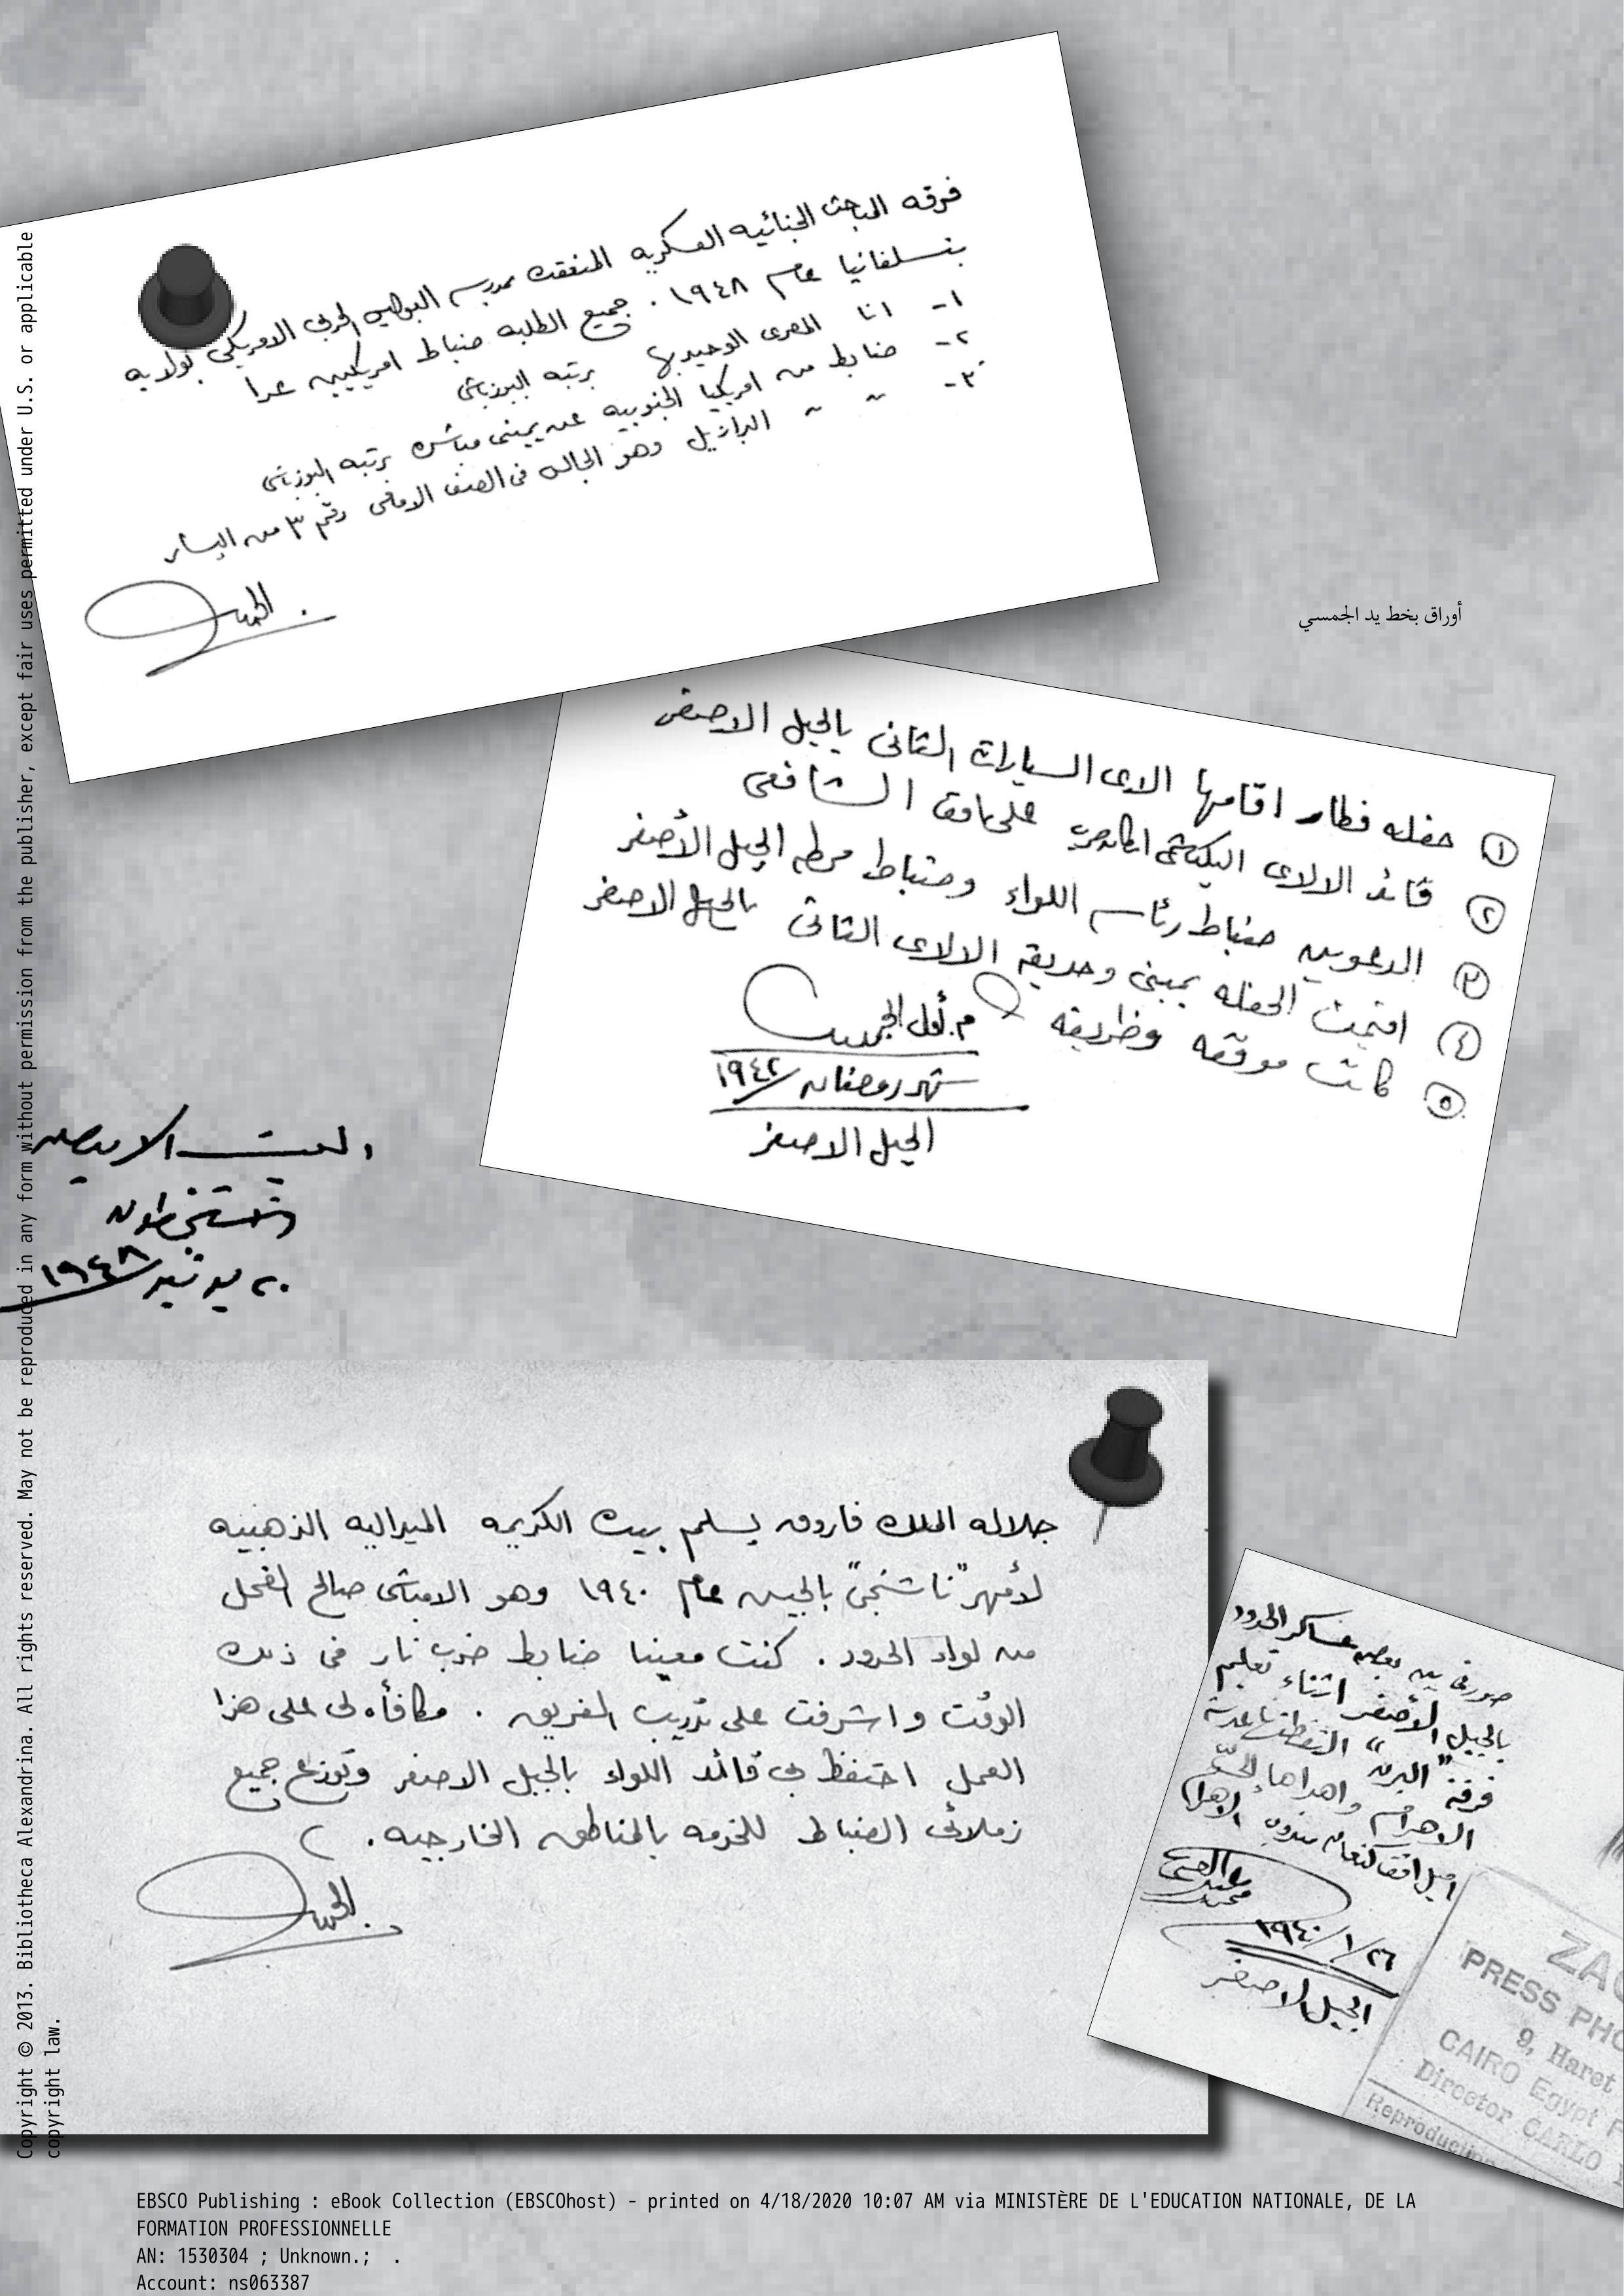 فرقه المباحث الجنائيه العسكريه المنعقدة بمدرسه البوليس الحربى الامريكى بولايه
بنسلفانيا عام ١٩٤٨ . جميع الطلبه ضباط امريكيين عدا
١- انا المصرى الوحيد بها برتبه اليوزباشى
٢- ضابط من امريكيا الجنوبيه عن يمينى مباشره برتبه اليوزباشى
٣- " " البرازيل وهو الجالس فى الصف الامامى رقم ٣ من اليسار
الجمسى
أوراق بخط يد الجمسي
١ حفله فطار اقامها الالاى السيارات الثانى بالجبل الاصفر
٢ قائد الالاى البكباشى على الشافعى
٣ المدعوين ضباط رئاسه اللواء وضباط محطه الجبل الأصفر
٤ اقيمت الحفله بمبنى وحديقه الالاى الثانى بالجبل الاصفر
٥ كانت موفقه وظريفه
م. أول الجمسى
شهر رمضان ١٩٤٢
الجبل الاصفر
البيت الابيض
واشنجطون
٢٠ يونيه ١٩٤٨
جلاله الملك فاروق يسلم بيده الكريمه الميداليه الذهبيه
لأمهر "ناشنجى" بالجيش عام ١٩٤٠ وهو الامباشى صالح الفحل
من لواء الحدود . كنت معينا ضابط ضرب نار فى ذلك
الوقت واشرفت على تدريب الفريق . مكافأه لى على هذا
العمل احتفظ بى قائد اللواء بالجبل الاصفر وتوزع جميع
زملائى الضباط للخدمه بالمناطق الخارجيه .
الجمسى
صورتى بين بعض عساكر الحدود
بالجبل الأصفر اثناء تعليم
فرقة "البرن" التقطتها عدسة
الاهرام واهداها
اميل مندوب الاهرام
محمد عبد الغنى
٢٦/١/١٩٤٠
الجبل الاصفر
PRESS PHO
9, Haret
CAIRO Egypt
Director CARLO
Copyright © 2013. Bibliotheca Alexandrina. All rights reserved. May not be reproduced in any form without permission from the publisher, except fair uses permitted under U.S. or applicable
copyright law.
EBSCO Publishing : eBook Collection (EBSCOhost) - printed on 4/18/2020 10:07 AM via MINISTÈRE DE L'EDUCATION NATIONALE, DE LA
FORMATION PROFESSIONNELLE
AN: 1530304 ; Unknown.; .
Account: ns063387